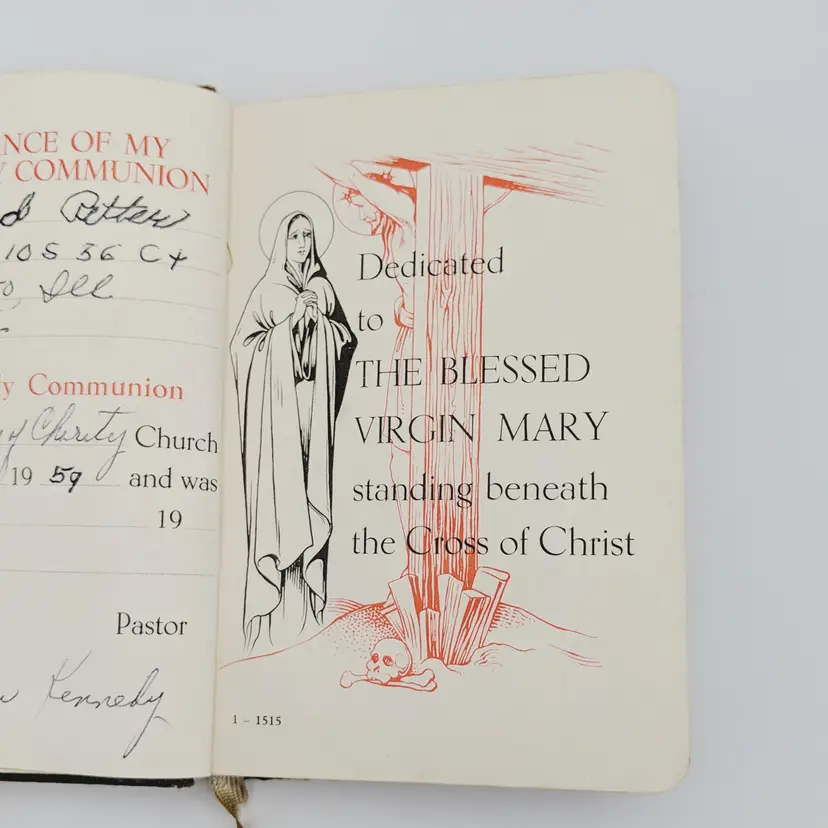 NCE OF MY
COMMUNION
Petter
10 S 36 Ct
Ill
ly Communion
of Charity Church
19 59 and was
19
Pastor
Kennedy
Dedicated
to
THE BLESSED
VIRGIN MARY
standing beneath
the Cross of Christ
1 – 1515